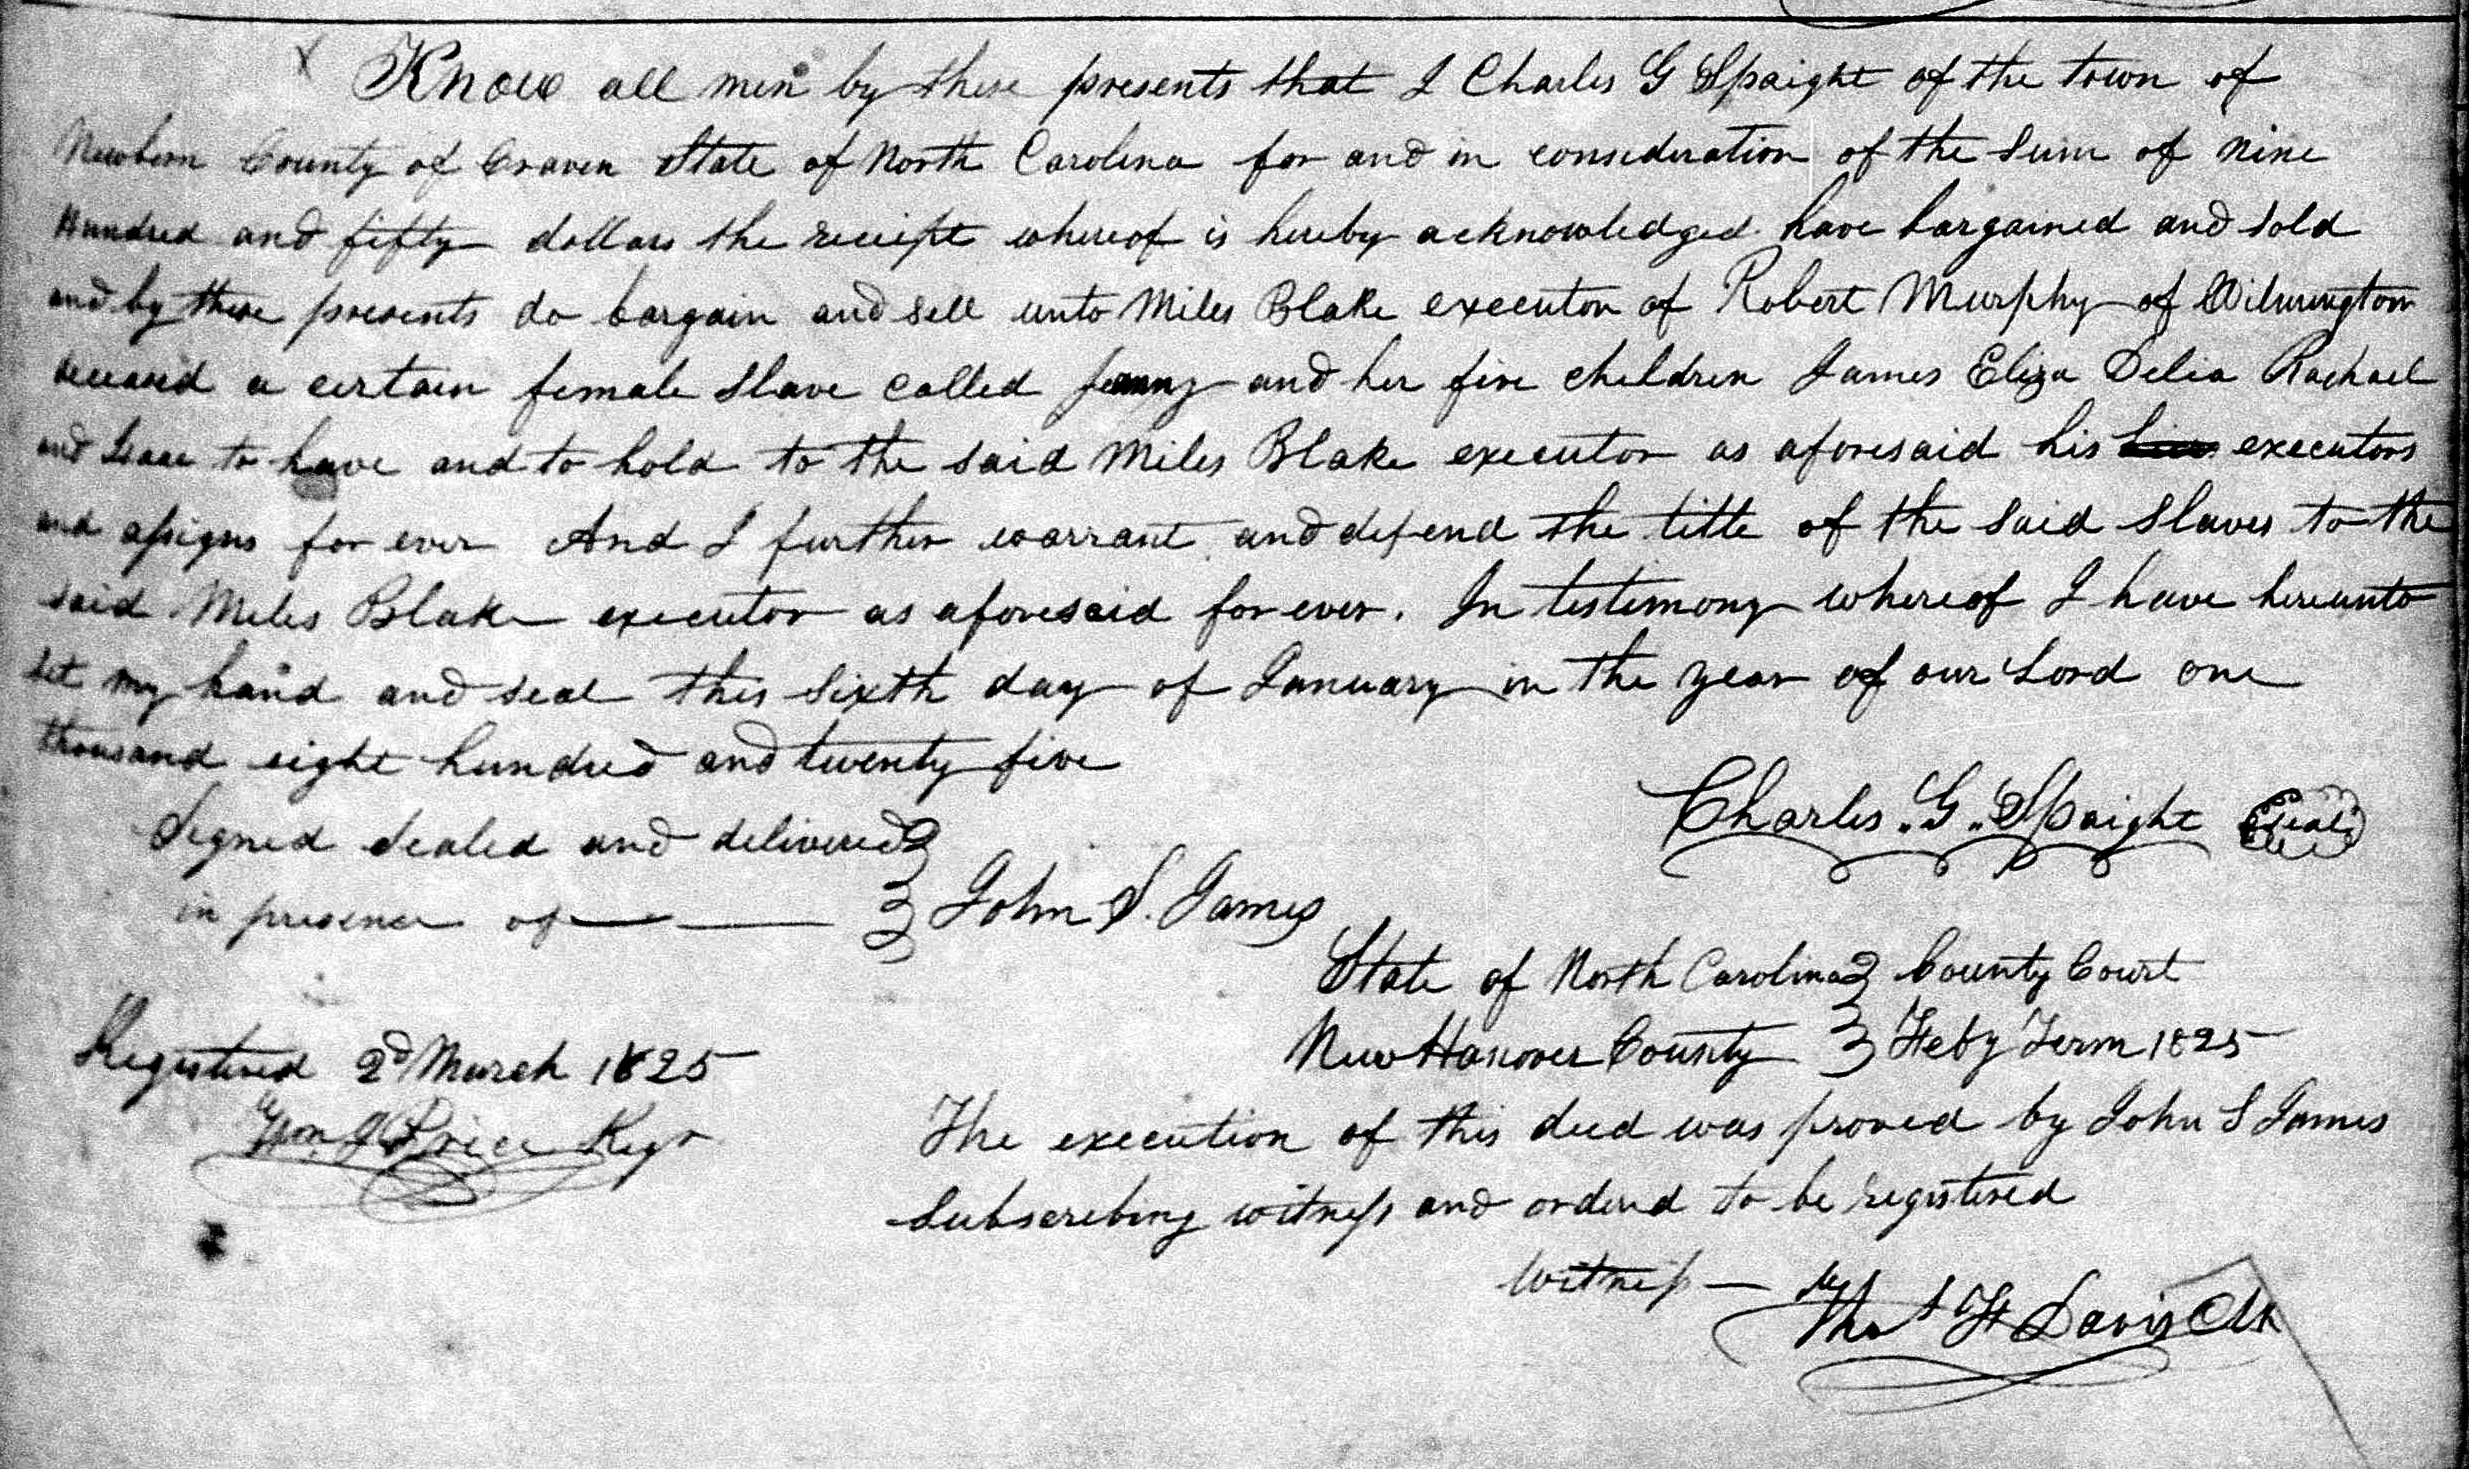 Know all men by these presents that I Charles G Spaight of the town of
Newbern County of Craven State of North Carolina for and in consideration of the sum of nine
Hundred and fifty dollars the receipt whereof is hereby acknowledged have bargained and sold
and by these presents do bargain and sell unto Miles Blake executor of Robert Murphy of Wilmington
deceased a certain female slave called and her five children James Eliza Delia Rachael
and Isaac to have and to hold to the said Miles Blake executor as aforesaid his executors
and assigns for ever And I further warrant and defend the title of the said slaves to the
said Miles Blake executor as aforesaid for ever. In testimony whereof I have hereunto
set my hand and seal this sixth day of January in the year of our Lord one
thousand eight hundred and twenty five
Charles. G. Spaight Seal
Signed sealed and delivered
in presence of John S. James
State of North Carolina County Court
New Hanover County Feby Term 1825
Registered 2d March 1825
Wm. J Price Regr
The execution of this deed was proved by John S James
Subscribing witness and orderd to be registered
Witness Thos H Davis Clk